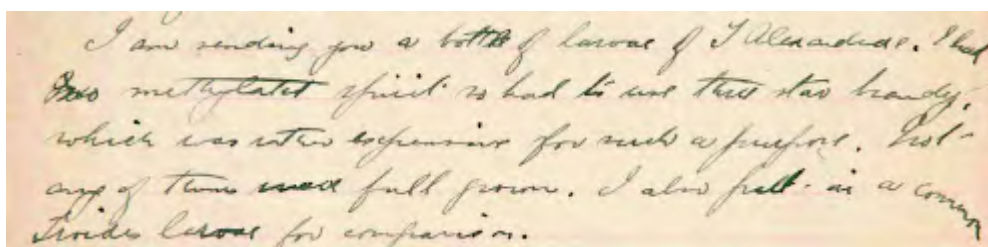 I am sending you a bottle of larvae of T Alexandrae. I had
no methylated spirit so had to use three star brandy,
which was rather expensive for such a purpose. Not
any of them were full grown. I also put in a common
Troides larvae for comparison.